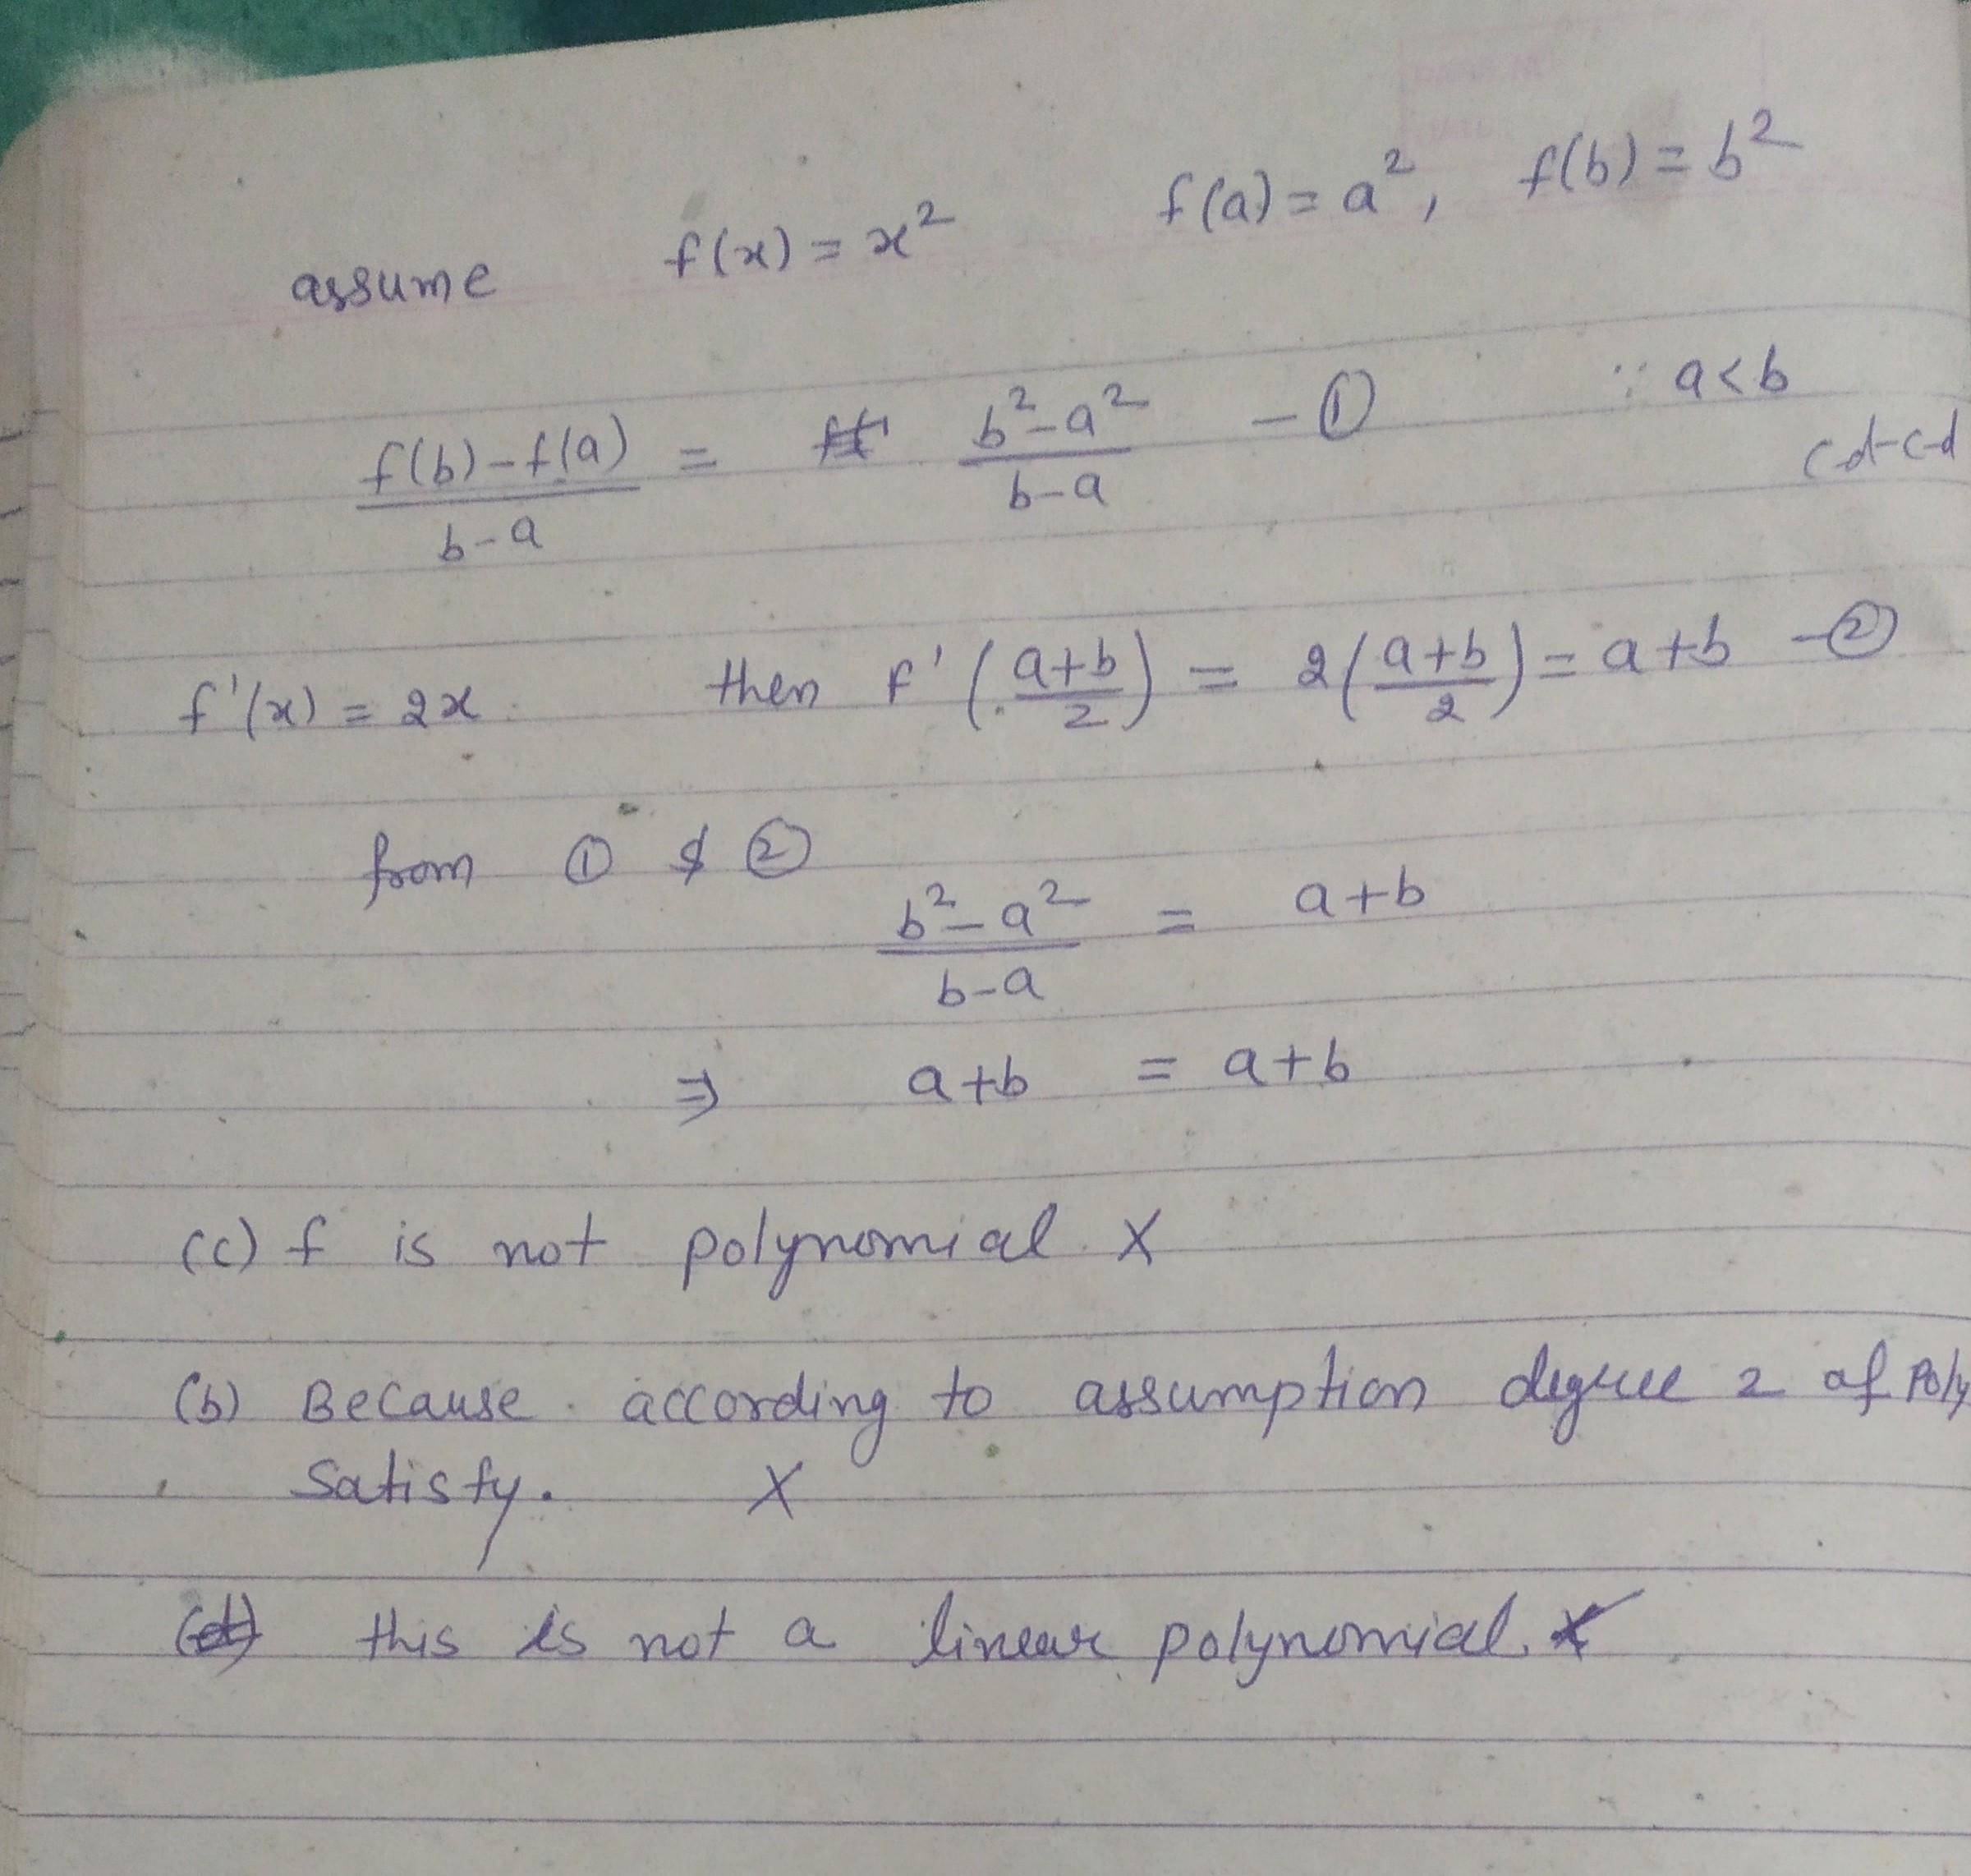 assume f(x) = x² f(a) = a², f(b) = b²
f(b)-f(a) / b-a = b²-a² / b-a - ① ∵ a<b
f'(x) = 2x then f'(a+b / 2) = 2(a+b / 2) = a+b - ②
from ① & ②
b²-a² / b-a = a+b
⇒ a+b = a+b
(c) f is not polynomial X
(b) Because according to assumption degree 2 of Poly
satisfy. X
(d) this is not a linear polynomial. X